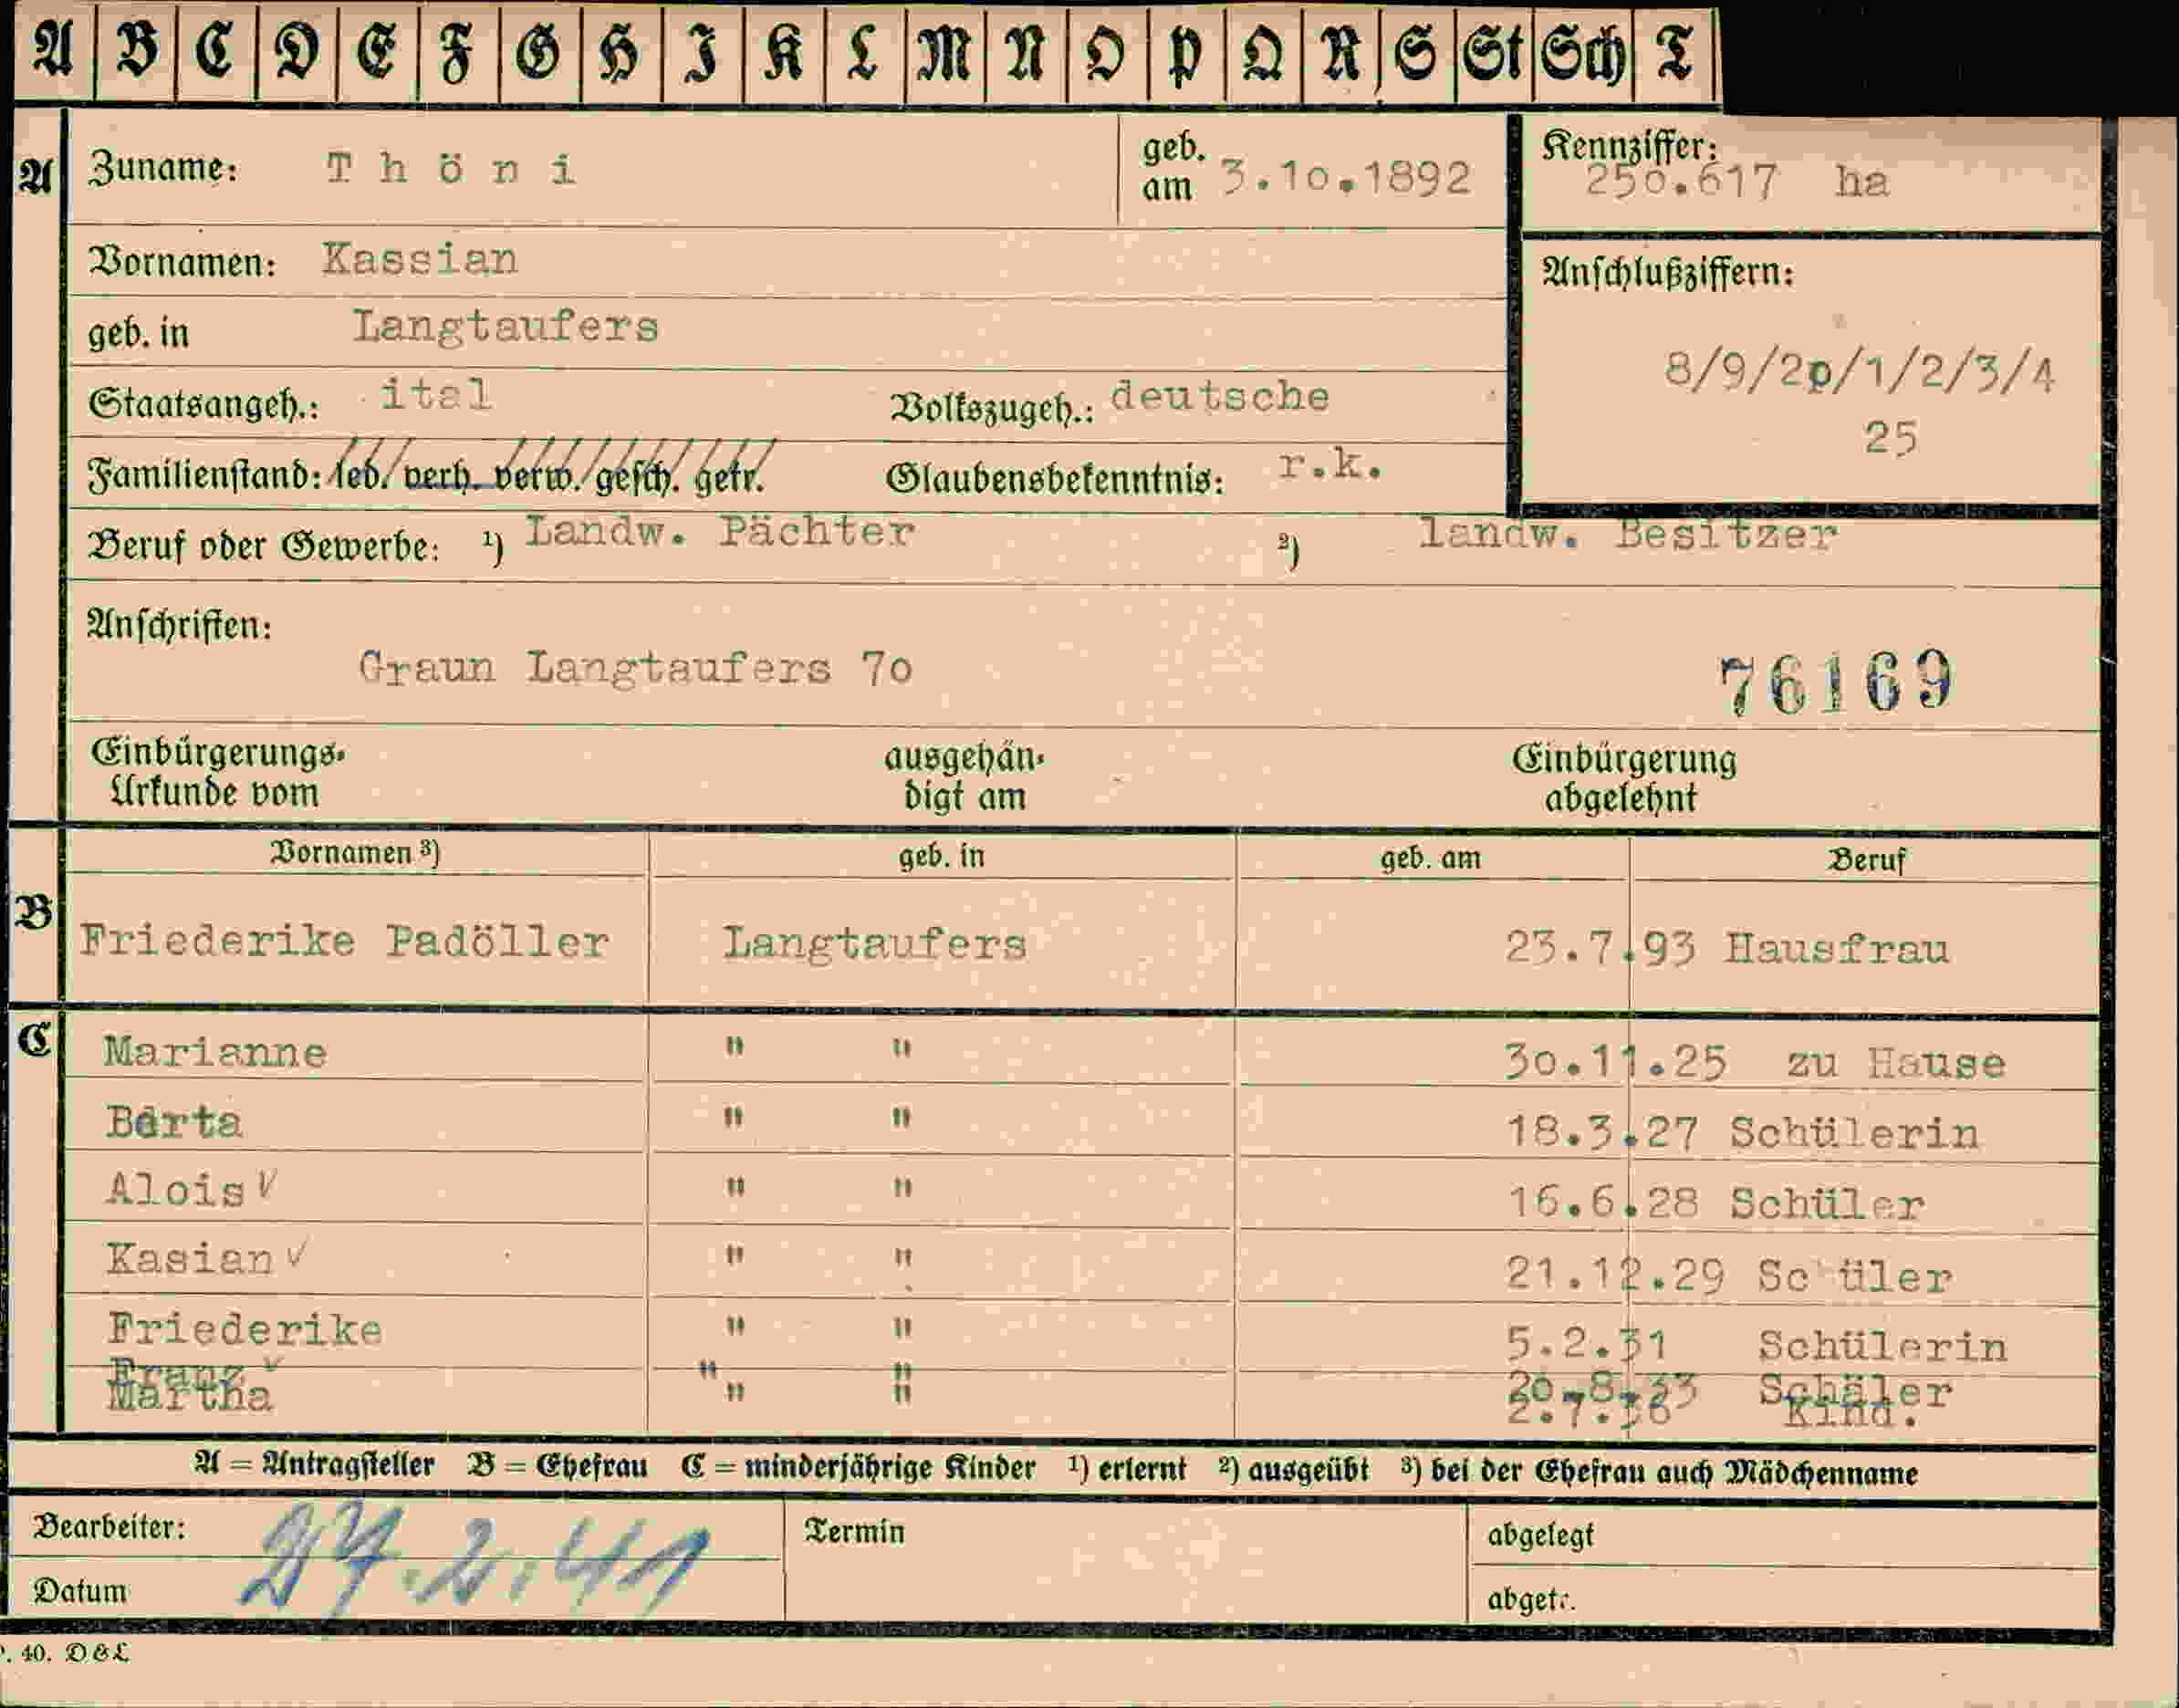 A B C D E F G H I K L M N O P Q R S St Sch T
A Zuname: Thöni geb. am 3.10.1892 Kennziffer: 250.617 ha
Vornamen: Kassian
Anschlußziffern:
geb. in Langtaufers
8/9/20/1/2/3/4
Staatsangeh.: ital Volkszugeh.: deutsche
25
Familienstand: led. verh. verw. gesch. getr. Glaubensbekenntnis: r.k.
Beruf oder Gewerbe: ¹) Landw. Pächter ²) landw. Besitzer
Anschriften:
Graun Langtaufers 70 76169
Einbürgerungs- ausgehän- Einbürgerung
Urkunde vom digt am abgelehnt
Vornamen ³) geb. in geb. am Beruf
B Friederike Padöller Langtaufers 23.7.93 Hausfrau
C Marianne " " 30.11.25 zu Hause
Berta " " 18.3.27 Schülerin
Alois √ " " 16.6.28 Schüler
Kasian √ " " 21.12.29 Sc üler
Friederike " " 5.2.31 Schülerin
Franz √ " " 20.8.33 Schüler
Martha " " 2.7.36 Kind.
A = Antragsteller B = Ehefrau C = minderjährige Kinder ¹) erlernt ²) ausgeübt ³) bei der Ehefrau auch Mädchenname
Bearbeiter: Termin abgelegt
27.2.41
Datum abgetr.
. 40. D & L